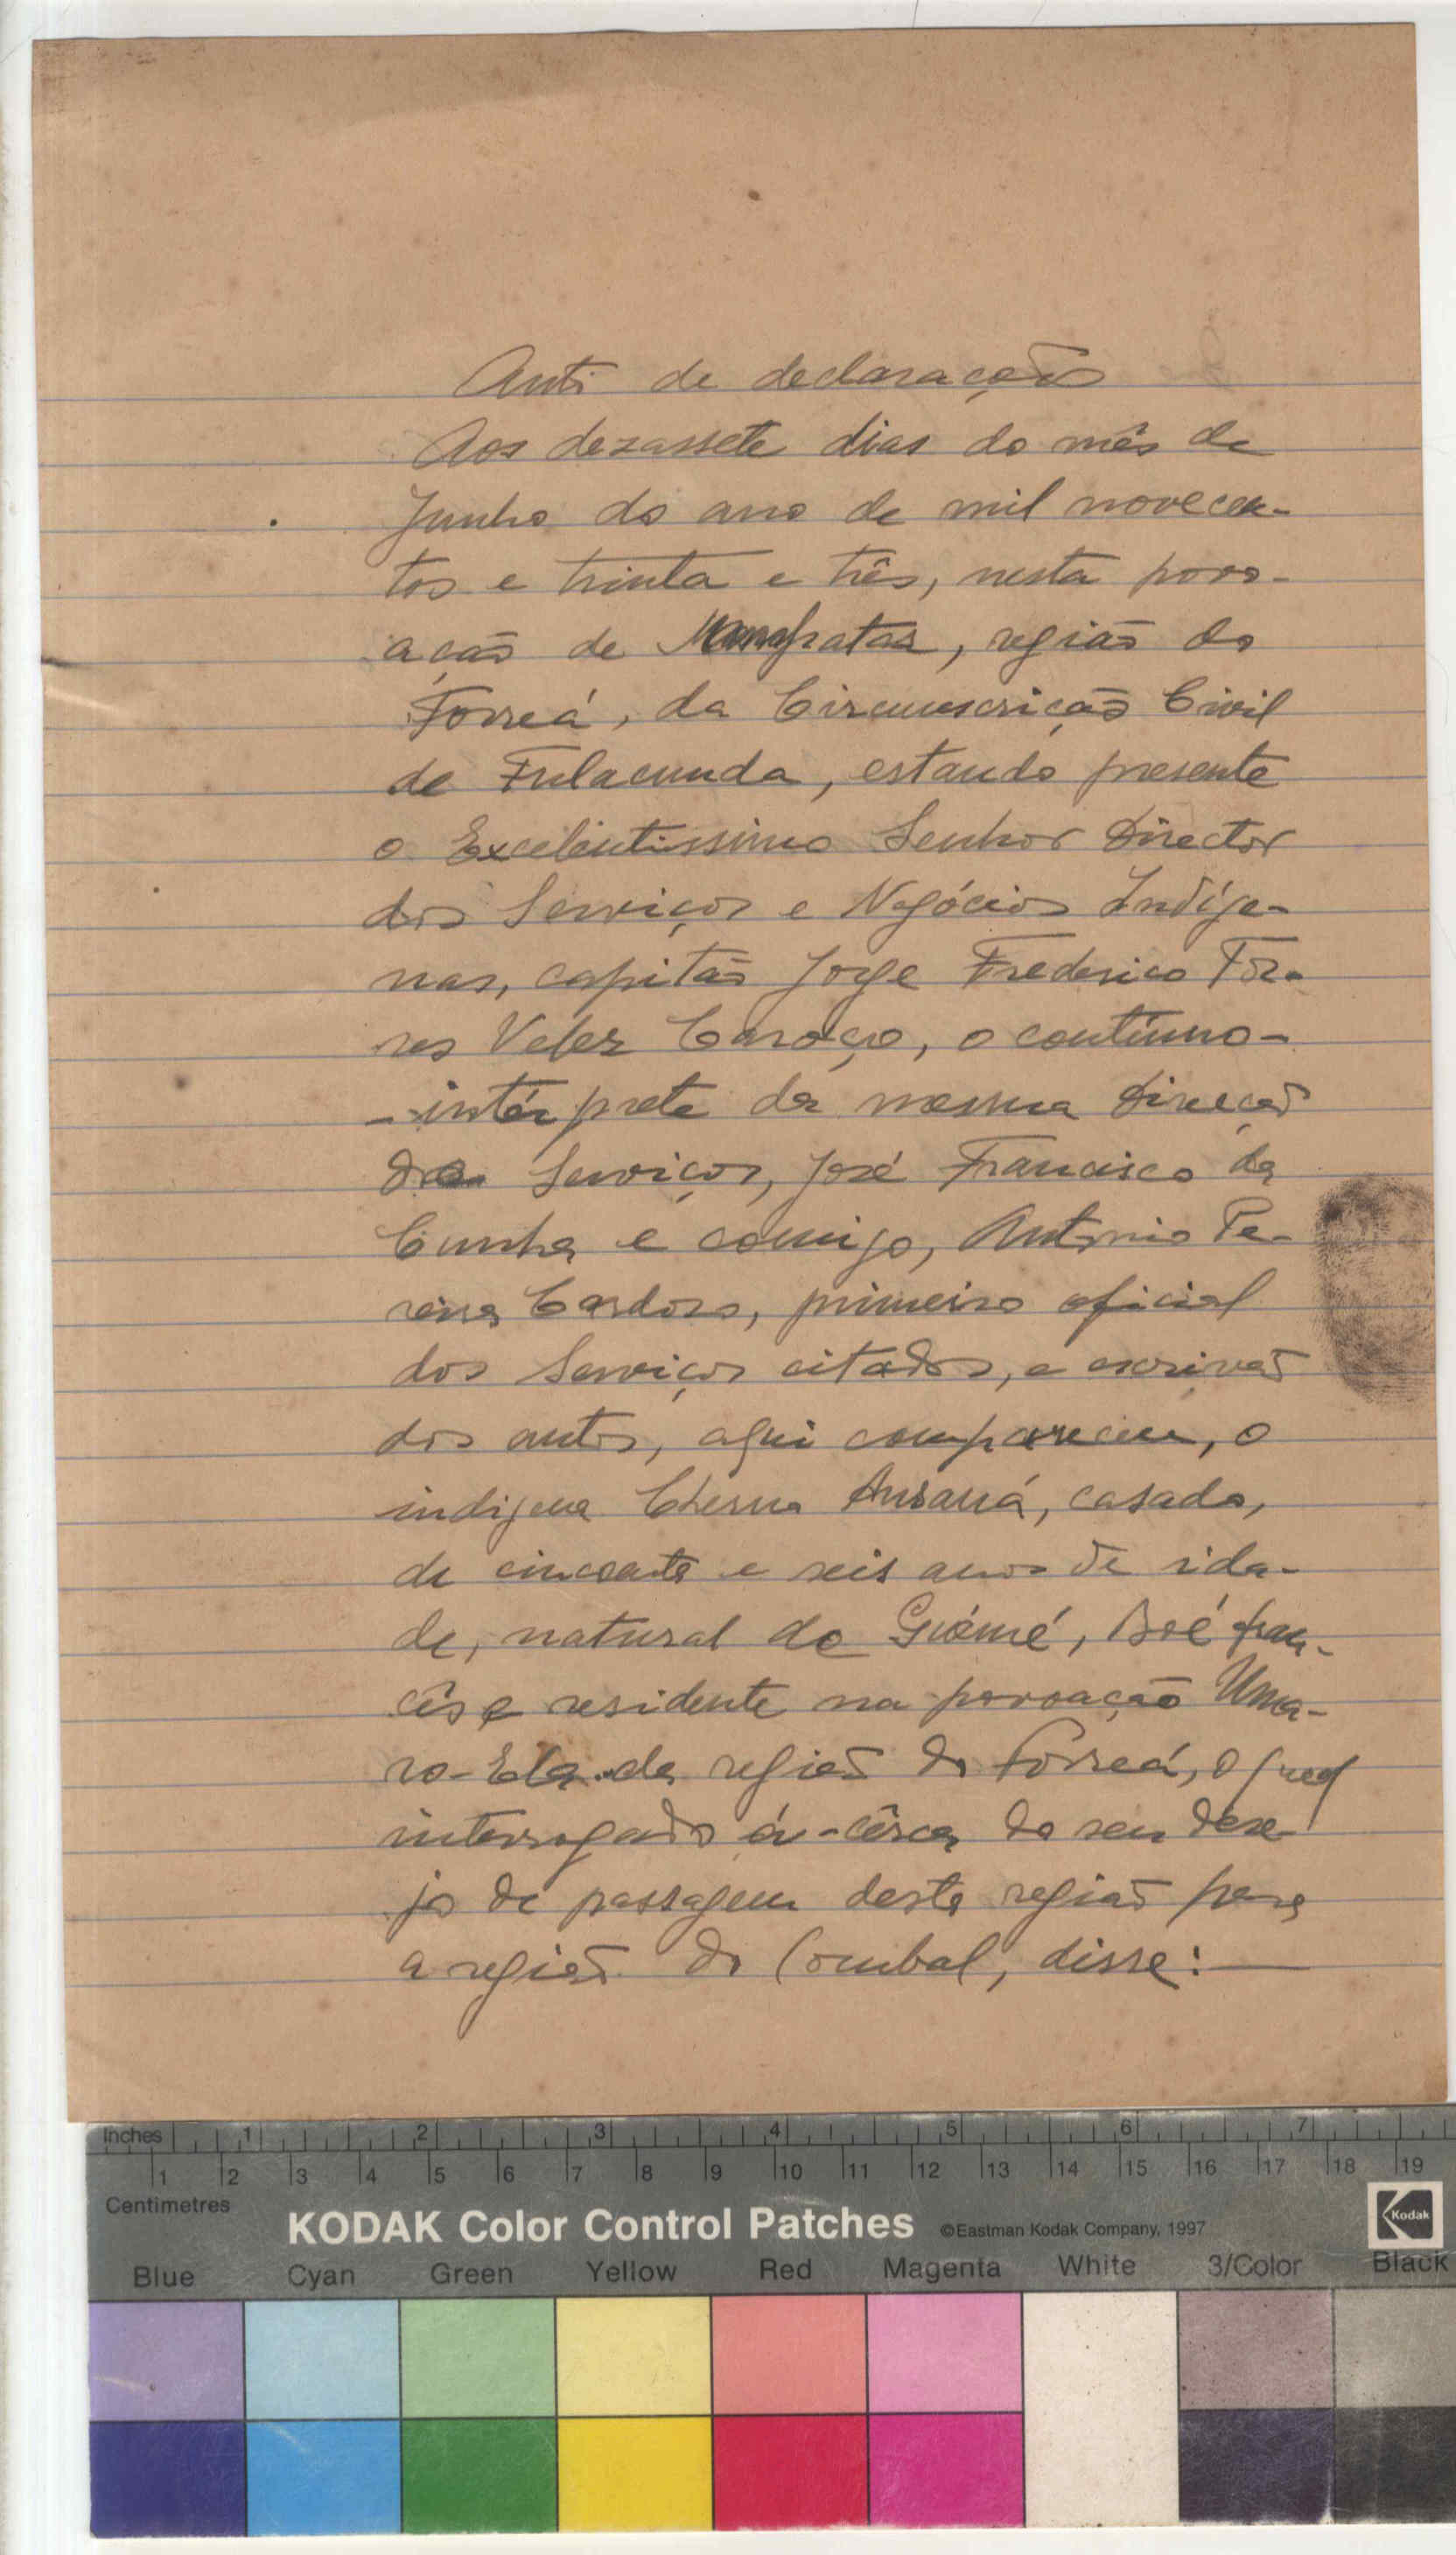 Auto de declaração
Aos dezassete dias do mês de
Junho do ano de mil novecen-
tos e trinta e três, nesta povo-
ação de Mampatas, região do
Forreá, da Circunscrição Civil
de Fulacunda, estando presente
o Excelentissimo Senhor Director
dos Serviços e Negócios Indíge-
nas, capitão Jorge Frederico Tor-
res Velez Caroço, o contínuo-
-intérprete da mesma Direcção
de Serviços, José Francisco da
Cunha e comigo, Antonio Pe-
reira Cardoso, primeiro oficial
dos Serviços citados, e escrivão
dos autos, aqui compareceu, o
indigena Cherno Ansaná, casado,
de cincoenta e seis anos de ida-
de, natural de Guómé, Boé fran-
cês e residente na povoação Uma-
ro-Ela da região do Forreá, o qual
interrogado á-cêrca do seu dese-
jo de passagem desta região para
a região do Combal, disse:
Inches 1 2 3 4 5 6 7
1 2 3 4 5 6 7 8 9 10 11 12 13 14 15 16 17 18 19
Centimetres
KODAK Color Control Patches ©Eastman Kodak Company, 1997 Kodak
Blue Cyan Green Yellow Red Magenta White 3/Color Black